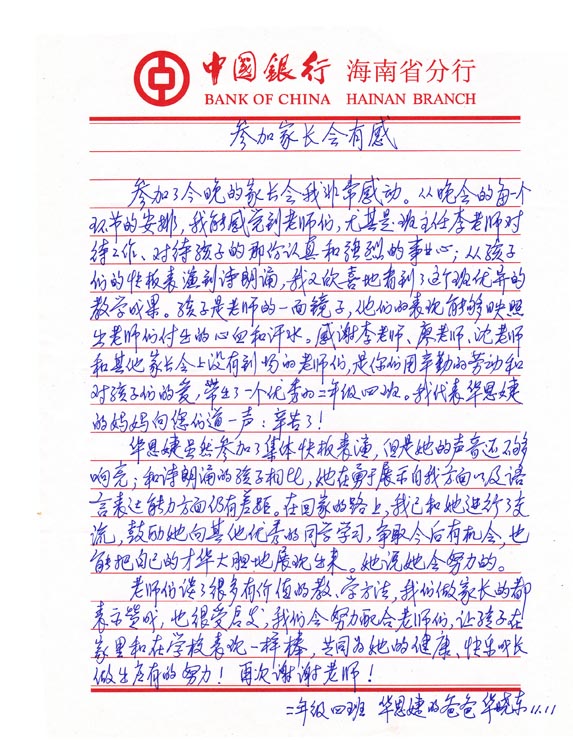 中國銀行 海南省分行
BANK OF CHINA HAINAN BRANCH
参加家长会有感
参加了今晚的家长会我非常感动。从晚会的每一个
环节的安排，我能感觉到老师们，尤其是班主任李老师对
待工作、对待孩子的那份认真和强烈的事业心；从孩子
们的快板表演到诗朗诵，我又欣喜地看到了这个班优异的
教学成果。孩子是老师的一面镜子，他们的表现能够映照
出老师们付出的心血和汗水。感谢李老师、廖老师、沈老师
和其他家长会上没有到场的老师们，是你们用辛勤的劳动和
对孩子们的爱，带出了一个优秀的二年级四班。我代表华思婕
的妈妈向您们道一声：辛苦了！
华思婕虽然参加了集体快板表演，但是她的声音还不够
响亮；和诗朗诵的孩子相比，她在勇于展示自我方面以及语
言表达能力方面仍有差距。在回家的路上，我已和她进行了交
流，鼓励她向其他优秀的同学学习，争取今后有机会，也
能把自己的才华大胆地展现出来。她说她会努力的。
老师们谈了很多有价值的教、学方法，我们做家长的都
表示赞成，也很受启发，我们会努力配合老师们，让孩子在
家里和在学校表现一样棒，共同为她的健康、快乐成长
做出应有的努力！再次谢谢老师！
二年级四班 华思婕的爸爸 华晓东 11.11